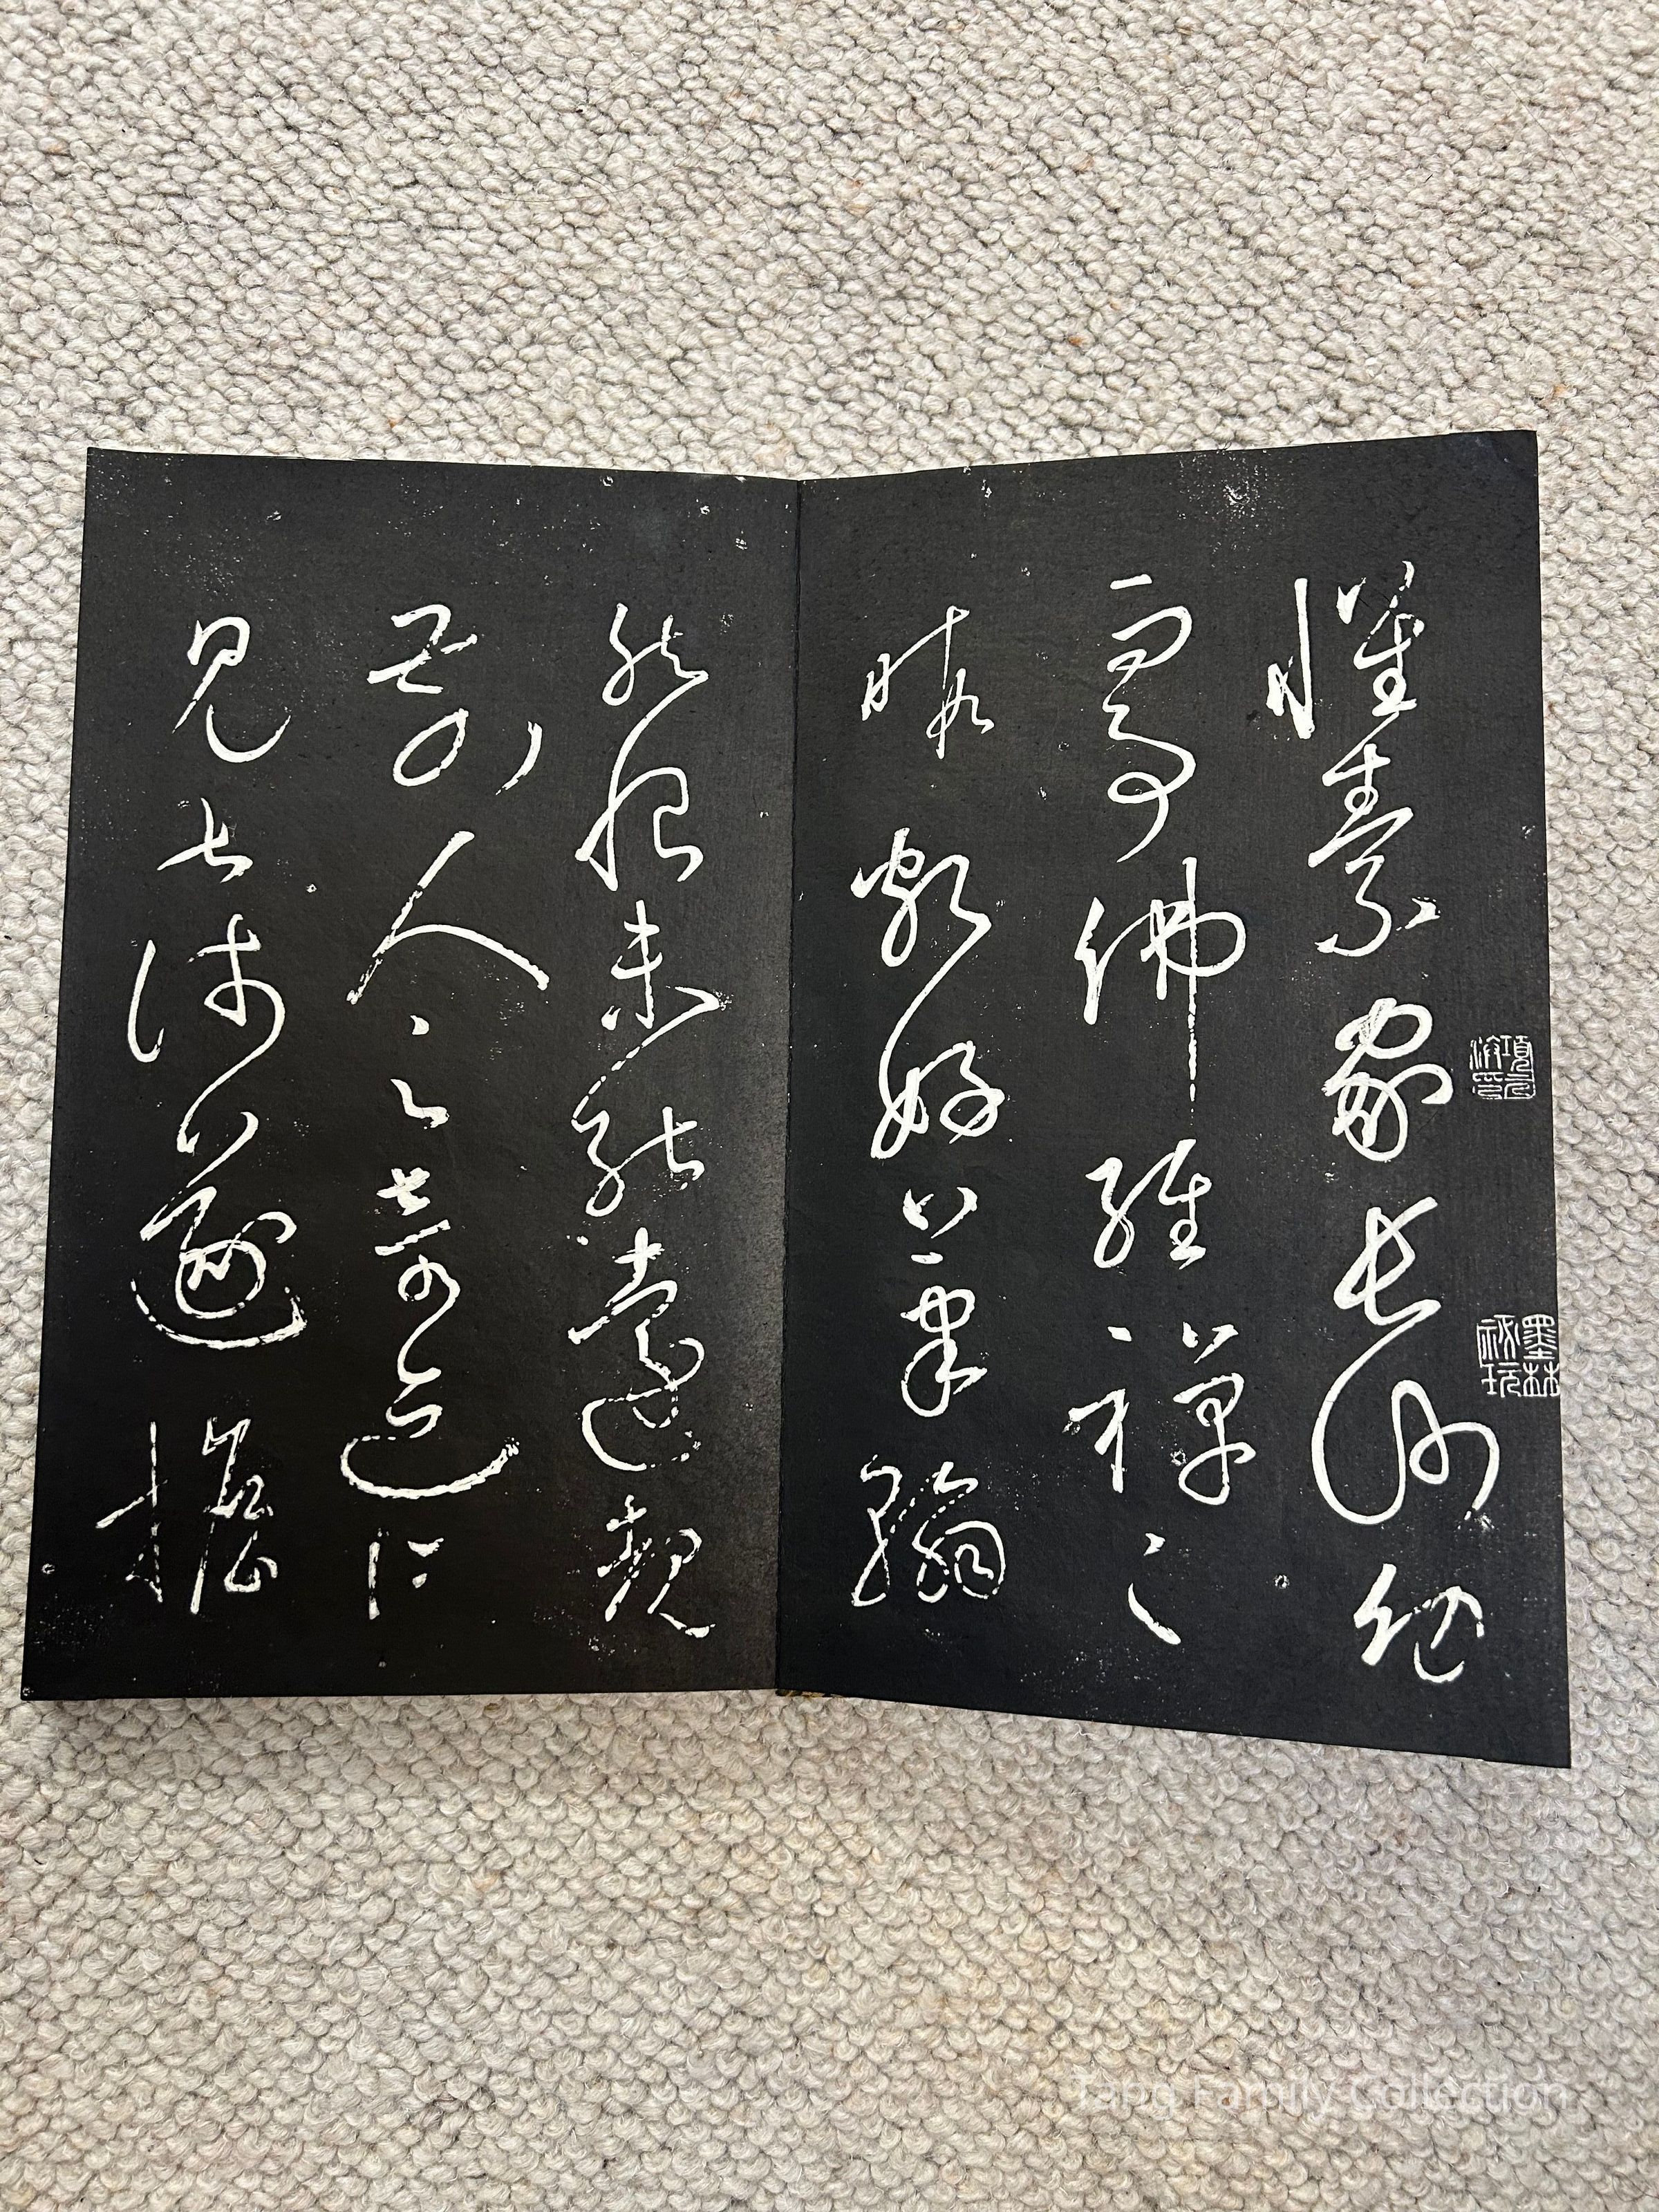 懷素家長沙幼
而事佛經禪之
暇頗好筆翰
然恨未能遠覩
前人之奇迹所
見甚淺遂擔
項元汴印
墨林秘玩
Tang Family Collection